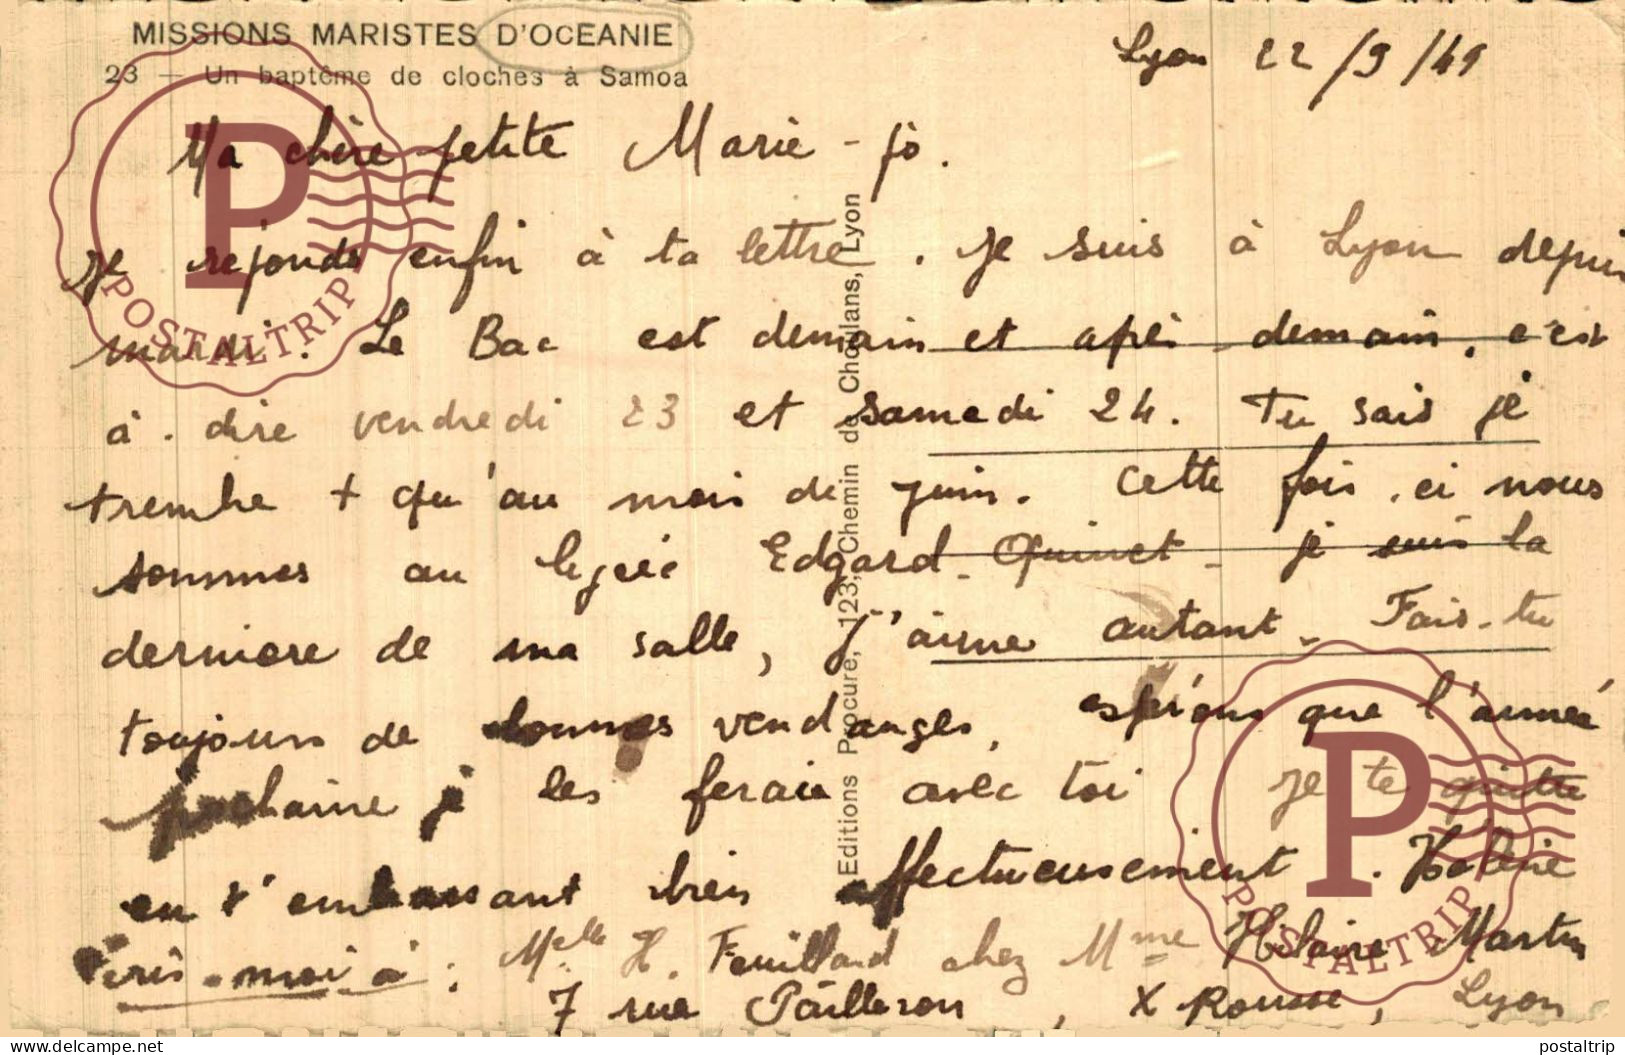 MISSIONS MARISTES D'OCEANIE
23 — Un baptême de cloches à Samoa
Lyon 22/9/49
Ma chère petite Marie-jo.
je réponds enfin à ta lettre. je suis à Lyon depuis
mardi. Le Bac est demain et après demain, c'est
à. dire vendredi 23 et samedi 24. Tu sais je
tremble + qu'au mois de juin. Cette fois.ci nous
sommes au lycée Edgard-Quinet. je suis la
dernière de ma salle, j'aime autant. Fais-tu
toujours de bonnes vendanges, espérons que l'année
prochaine je les ferais avec toi je te quitte
en t'embrassant bien affectueusement. Hélène
Ecris-moi à : Melle H. Feuillard chez Mme Hilaire Martin
7 rue Pailleron, X Rousse, Lyon
Editions Procure, 123, Chemin de Choulans, Lyon
POSTALTRIP
POSTALTRIP
delcampe.net
postaltrip